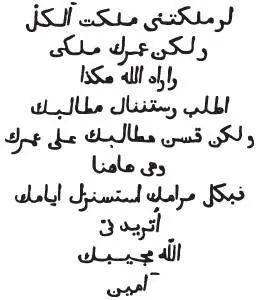 لو ملكتنى ملكت ٱلكلّ
ولكن عمرك ملكى
واراه الله هكذا
اطلب وستنال مطالبك
ولكن قسن مطالبك على عمرك
وهى هاهنا
فبكل مرامك استسنزل ايامك
أتريد نىّ
اللّه مجيبك
آمين